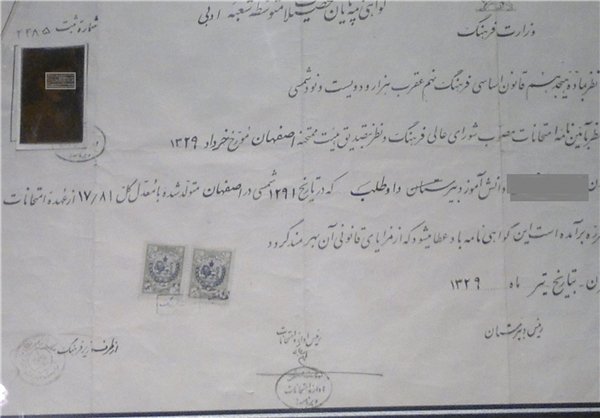 گواهی نامه پایان تحصیلات متوسطه شعبه ادبی
شماره ثبت ۲۲۸۵
وزارت فرهنگ
نظر بماده هیجدهم قانون اساسی فرهنگ نهم عقرب هزار و دویست و نود شمسی
نظر بآئین نامه امتحانات مصوب شورای عالی فرهنگ و نظر بتصدیق هیئت ممتحنه اصفهان مورخ خرداد ۱۳۲۹
دانش آموز دبیرستان داوطلب که در تاریخ ۱۲۹۱ شمسی در اصفهان متولد شده با معدل کل ۱۷/۸۱ از عهده امتحانات
برآمده است این گواهی نامه باو عطا میشود که از مزایای قانونی آن بهره مند گردد
بتاریخ تیر ماه ۱۳۲۹
رئیس دبیرستان
رئیس اداره امتحانات
از طرف وزیر فرهنگ